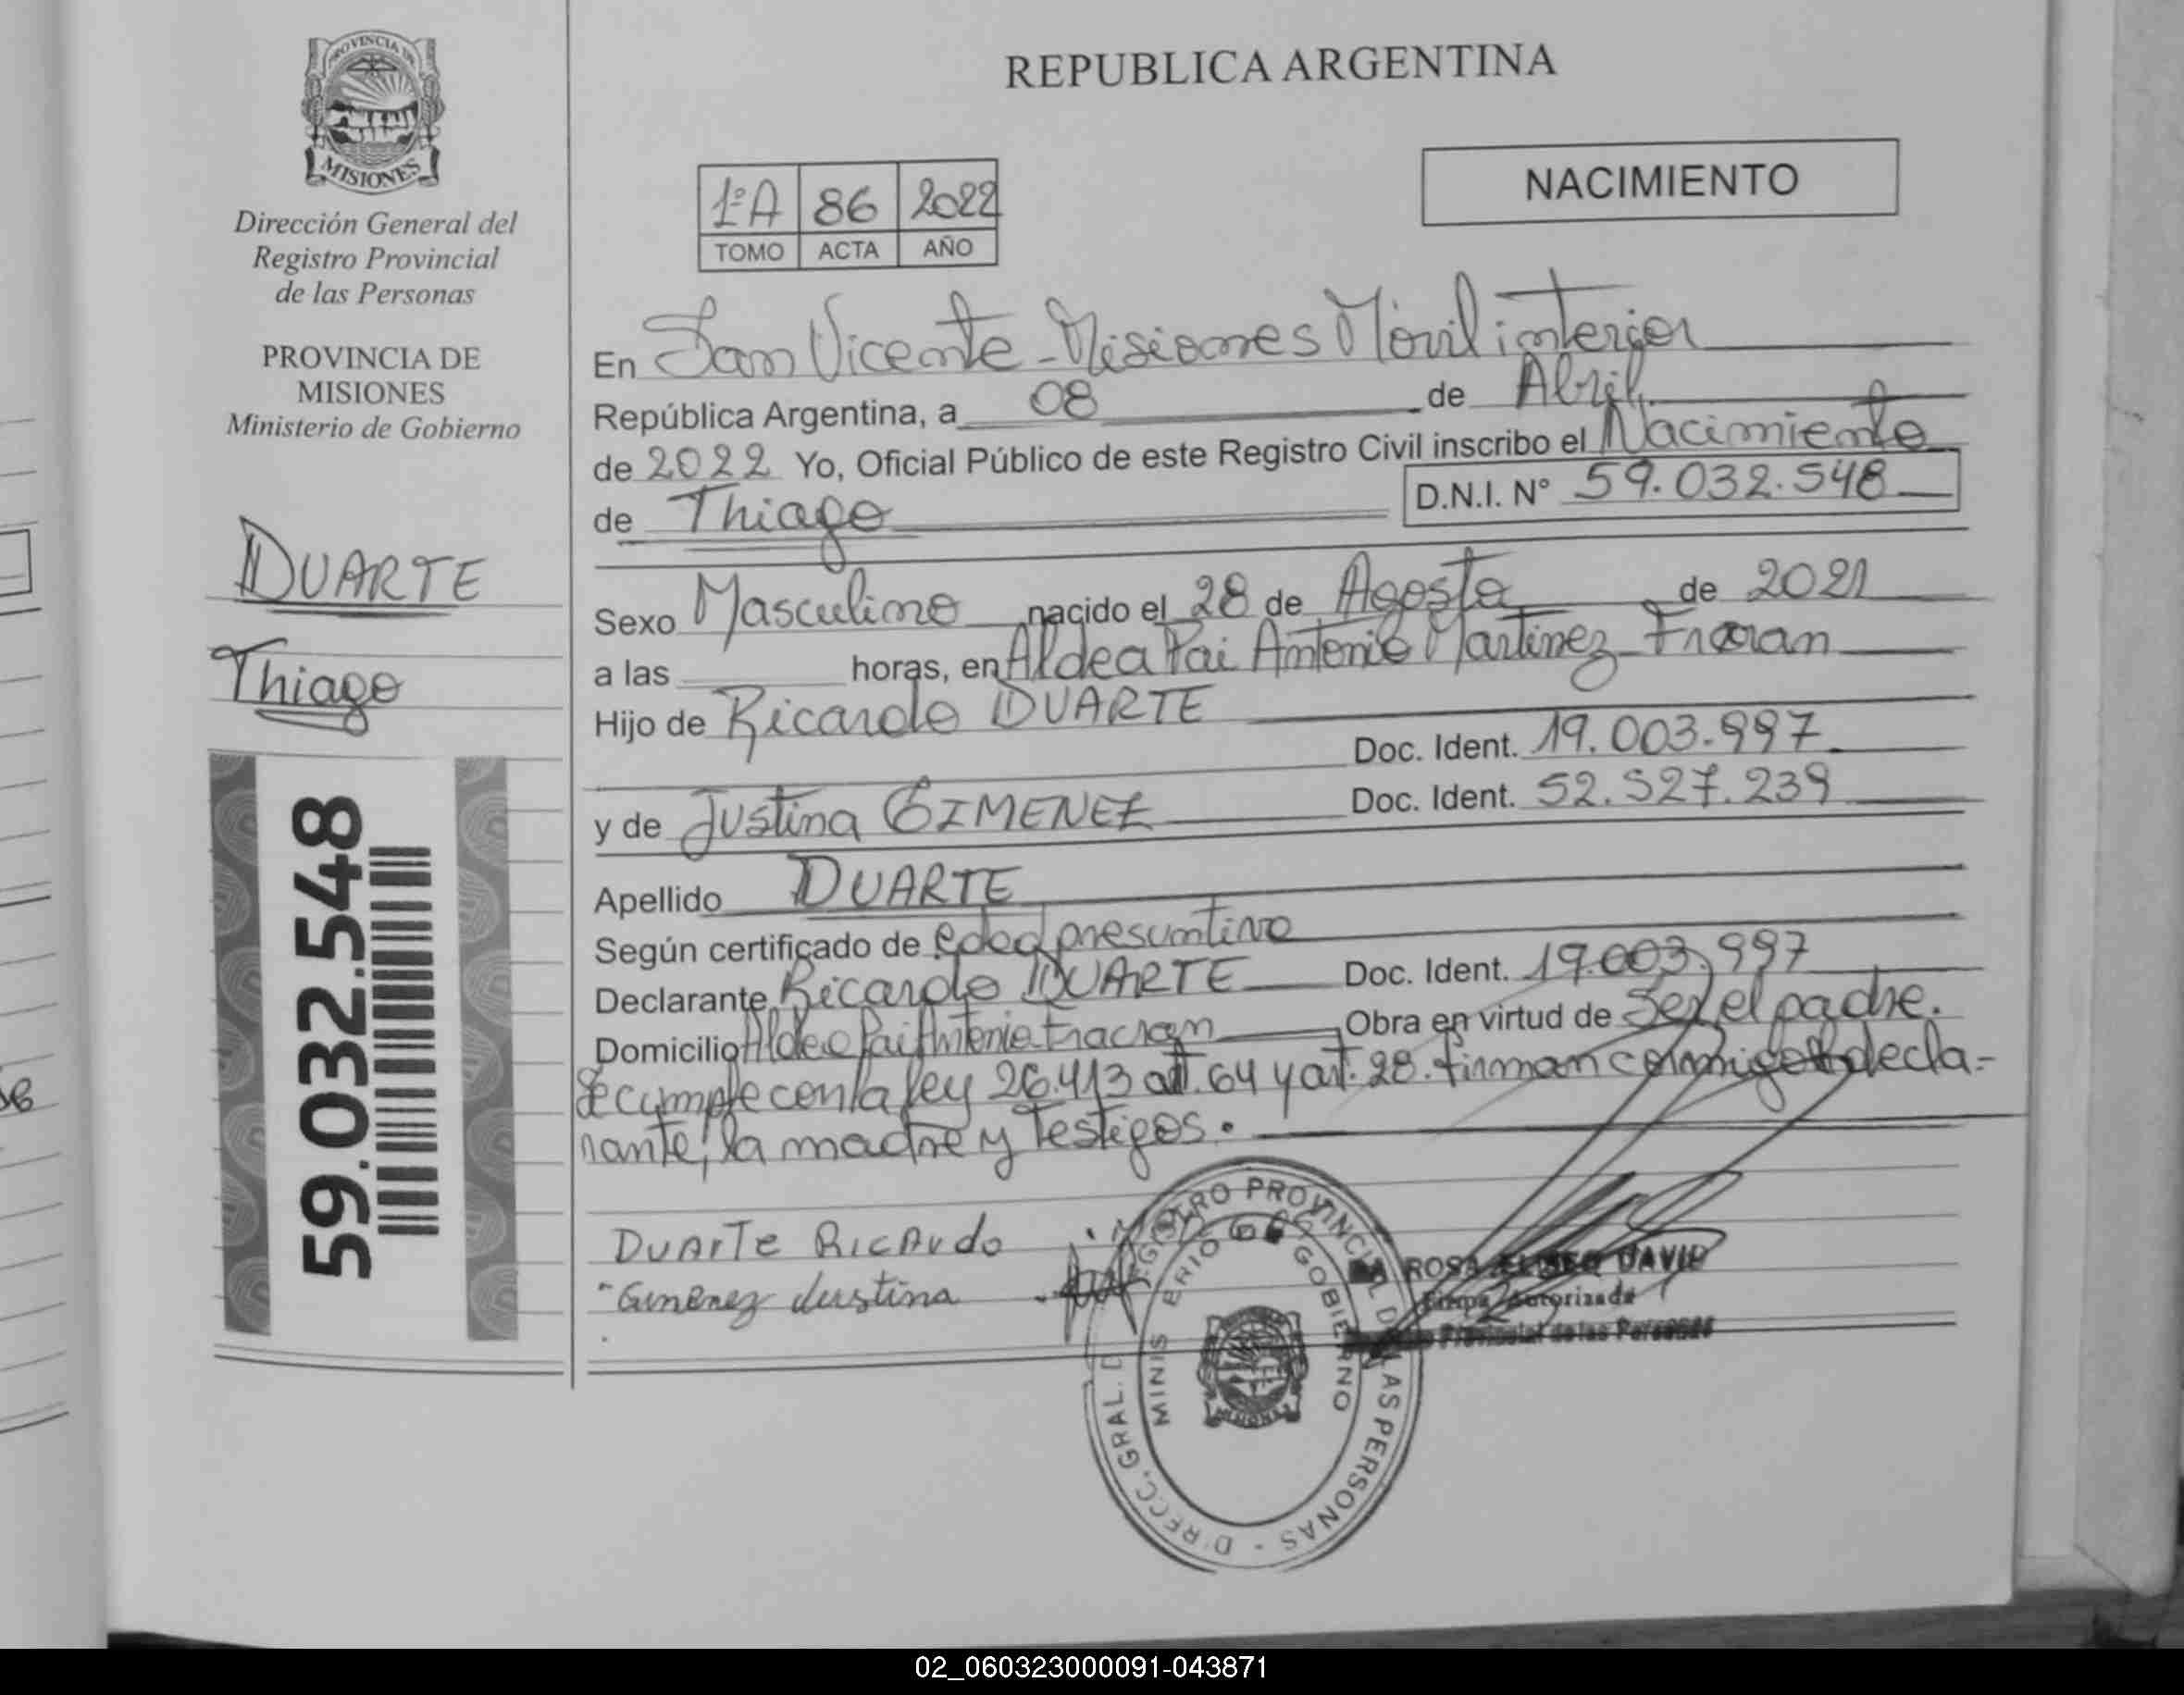 PROVINCIA DE
MISIONES
Dirección General del
Registro Provincial
de las Personas
PROVINCIA DE
MISIONES
Ministerio de Gobierno
DUARTE
Thiago
59.032.548
REPUBLICA ARGENTINA
NACIMIENTO
1ºA 86 2022
TOMO ACTA AÑO
En San Vicente - Misiones Móvil interior
República Argentina, a 08 de Abril
de 2022 Yo, Oficial Público de este Registro Civil inscribo el Nacimiento
de Thiago D.N.I. N° 59.032.548
Sexo Masculino nacido el 28 de Agosto de 2021
a las horas, en Aldea Pai Antonio Martinez - Fracran
Hijo de Ricardo DUARTE
Doc. Ident. 19.003.997
y de Justina GIMENEZ Doc. Ident. 52.527.239
Apellido DUARTE
Según certificado de edad presuntiva
Declarante Ricardo DUARTE Doc. Ident. 19.003.997
Domicilio Aldea Pai Antonio Fracran Obra en virtud de Ser el padre.
Se cumple con la ley 26.413 art. 64 y art. 28. firman conmigo el decla-
rante, la madre y testigos.
Duarte Ricardo
Gimenez Justina
DIRECC. GRAL. DEL REGISTRO PROVINCIAL DE LAS PERSONAS -
MINISTERIO DE GOBIERNO
DA ROSA ELISEO DAVID
Firma Autorizada
Provincial de las Personas
02_060323000091-043871